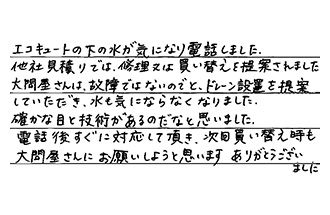 エコキュートの下の水が気になり電話しました.
他社見積りでは、修理又は買い替えを提案されました
大問屋さんは、故障ではないのでと、ドレーン設置を提案
していただき、水も気にならなくなりました.
確かな目と技術があるのだなと思いました.
電話後すぐに対応して頂き、次回買い替え時も
大問屋さんにお願いしようと思います ありがとうござい
ました